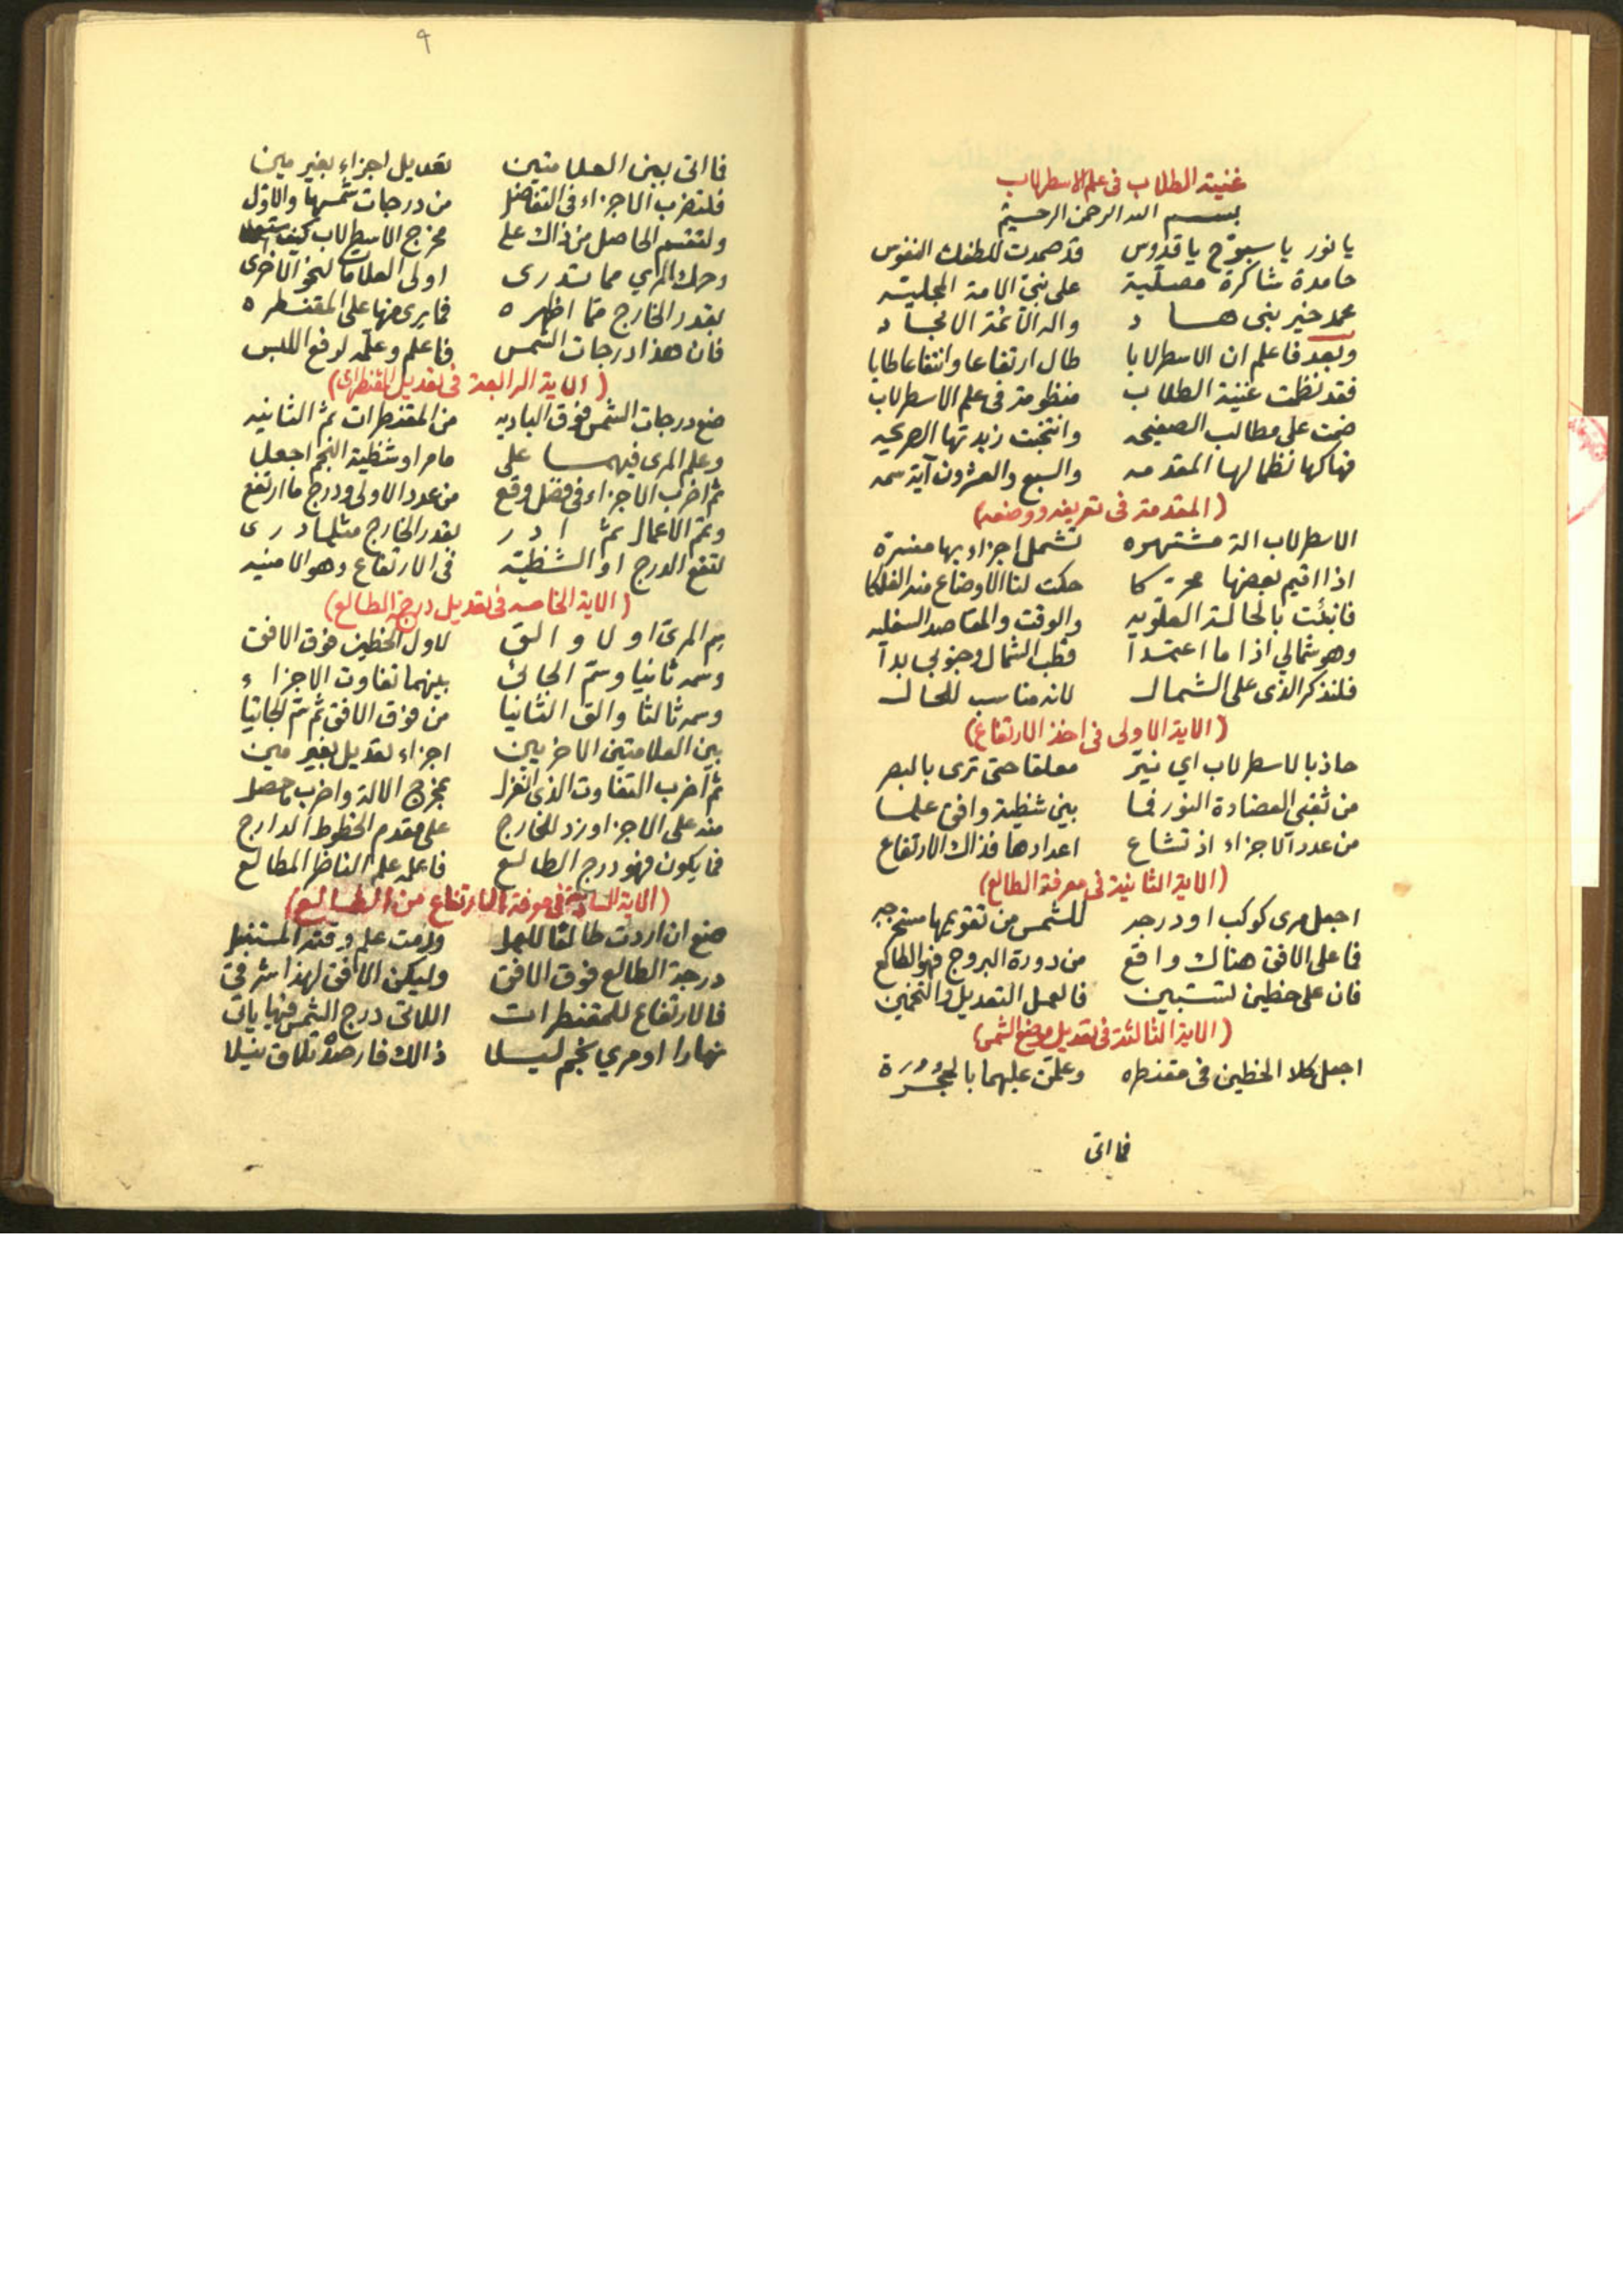 غنية الطلاب فى علم الاسطرلاب
بسم الله الرحمن الرحيم
يا نور يا سبوّح يا قدّوس قد صمدت للطفك النفوس
حامدة شاكرة مصلّية على نبىّ الامة المجليّه
محمد خير بنى هاد واله الائمّة الامجاد
وبعد فاعلم ان الاسطرلابا طال ارتفاعا وانتفاعا طابا
فقد نظمت غنية الطلاب منظومة فى علم الاسطرلاب
ضمت على مطالب الصفيحه وانتجت زبدتها الصريحه
فهاكها نظما لها المقدمه والسبع والعشرون آية سمه
(المقدمة فى تعريفه ووضعه)
الاسطرلاب الة مشتهره تشمل اجزاء بها منسرة
اذا اقيم بعضها محركا حكت لنا الاوضاع منه الفلكا
فانبئت بالحالة العلويه والوقت والمقاصد السفليه
وهو شمالي اذا ما اعتمدا قطب الشمال وجنوبي بدا
فلنذكر الذى على الشمال لانه مناسب للحال
(الاية الاولى فى اخذ الارتفاع)
حاذ بالاسطرلاب اي نيّر معلقا حتى ترى بالبصر
من ثقبى العضادة النور فما بين شظية وافق علما
من عدد الاجزاء اذ تشاع اعدادها فذاك الارتفاع
(الاية الثانية فى معرفة الطالع)
اجعل مرى كوكب او درجه للشمس من تقويمها مستخرجه
فما على الافق هناك واقع من دورة البروج فهو الطالع
فان على خطين تستبين فالعمل التعديل والتخمين
(الاية الثالثة فى تعديل موضع الشمس)
اجعل كلا الخطين فى مقنطره وعلمّن عليهما بالمجرة
فما اتى
٩
فما اتى بين العلامتين تعديل اجزاء بغير مين
فلتضرب الاجزاء فى التفاضل من درجات شمسها والاوّل
ولتقسم الحاصل من ذاك على مخرج الاسطرلاب كيف
وحرك المري مما تدرى اولى العلامات لنحو الاخرى
بقدر الخارج ممّا اظهره فما يرى منها على المقنطره
فان هذا درجات الشمس فاعلم وعلّمه لرفع اللبس
(الاية الرابعة فى تعديل المقنطرات)
ضع درجات الشمس فوق الباديه من المقنطرات ثم الثانيه
وعلم المرى فيهما على ما مر او شظية النجم اجعلا
ثم اضرب الاجزاء فى فضل وقع من عدد الاولى ودرج ما ارتفع
وتمّ الاعمال ثم ادر بقدر الخارج مثلما درى
لتقع الدرج او الشظيّه فى الارتفاع وهو الامنيه
(الاية الخامسه فى تعديل درجة الطالع)
سم المرى اولا والق لاول الخطين فوق الافق
وسمه ثانيا وسمّ الجائى بينهما تفاوت الاجزاء
وسمه ثالثا والق الثانيا من فوق الافق ثم سمّ الجائيا
بين العلامتين الاخريين اجزاء تعديل بغير مين
ثم اضرب التفاوت الذى انعزل بمخرج الالة واضرب ما حصل
منه على الاجزا وزد للخارج على مقدم الخطوط الدارج
فما يكون فهو درج الطالع فاعلمه علم الناظر المطالع
(الاية السادسة فى معرفة الارتفاع من الطالع)
ضع ان اردت طالعا للعمل ورمت علم وقته المستقبل
درجة الطالع فوق الافق وليكن الافق لهذا شرقى
فالارتفاع للمقنطرات اللاتى درج الشمس فيها ياتى
نهارا او مري نجم ليلا ذالك فارصده تلاق نيلا